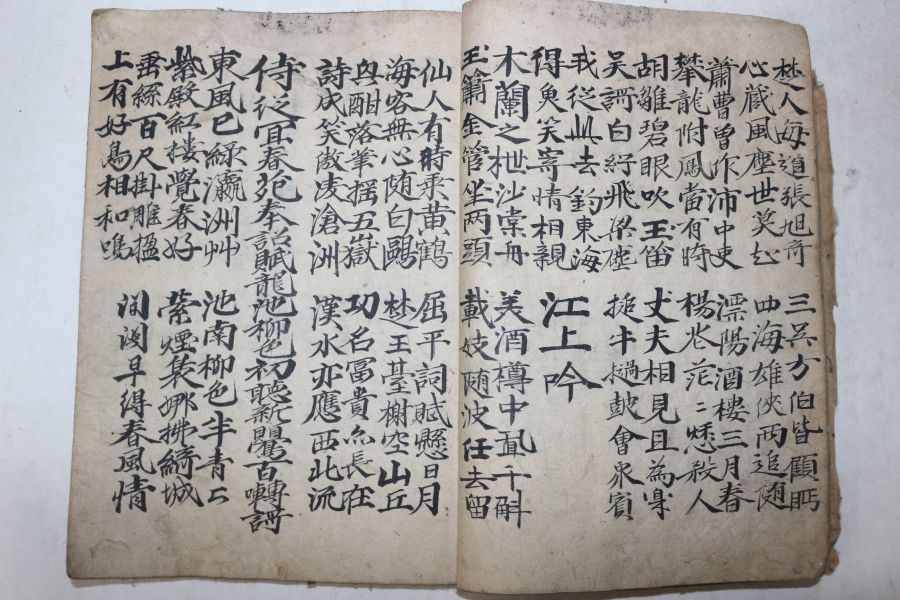 楚人每道張旭奇
心藏風塵世莫知
三吳方伯皆顧眄
四海雄俠兩追随
蕭曹曾作沛中吏
攀龍附鳳當有時
溧陽酒樓三月春
楊花茫〻愁殺人
胡雛碧眼吹玉笛
吳謌白紵飛梁塵
丈夫相見且為樂
搥牛撾鼓會衆賓
我從此去釣東海
得魚笑寄情相親
江上吟
木蘭之枻沙棠舟
玉簫金管坐两頭
美酒樽中置千斛
載妓随波任去留
仙人有時乗黄鶴
海客無心随白鷗
屈平詞賦懸日月
楚王臺榭空山丘
興酣落筆搖五嶽
詩成笑傲凌滄洲
功名冨貴尒長在
漢水亦應西北流
侍從宜春苑奉詔賦龍池柳色初聽新鸎百囀謌
東風已綠瀛洲艸
紫殿紅樓覺春好
池南柳色半青〻
縈煙裊娜拂綺城
垂絲百尺掛雕楹
上有好鳥相和鳴
間関早得春風情